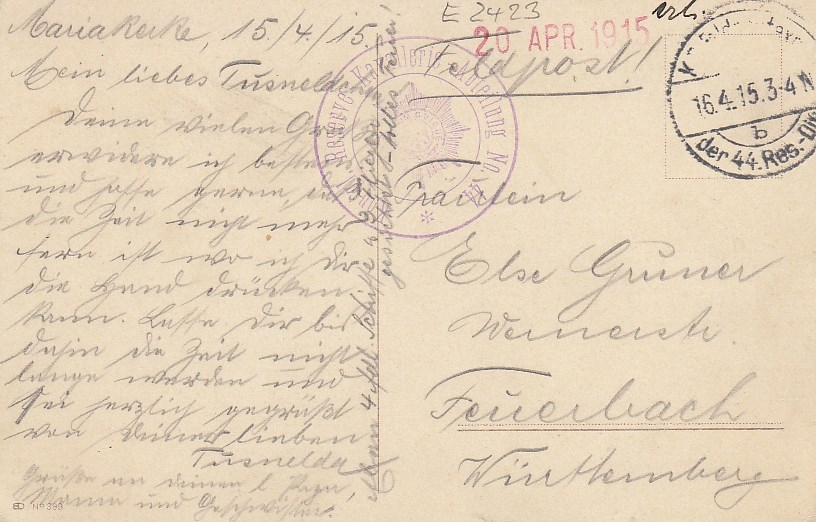 Mariakerke, 15./4./15.
Mein liebes Tusneldchen
Deine vielen Grüße
erwidere ich bestens
und hoffe gerne, daß
die Zeit nicht mehr
fern ist wo ich dir
die Hand drücken
kann. Lasse Dir bis
dahin die Zeit nicht
lange werden und
sei herzlich gegrüßt
von deiner lieben
Tusnelda
Grüße an deinen l. Papa,
Mama und Geschwister.
4 Schiffe & 3 Flieger
gesichtet
E 2423
20. APR. 1915
Feldpost!
Reserve Kavallerie Abteilung No. 44
16.4.15.3-4N
b
der 44. Res.-Div
Fräulein
Else Gruner
Wernerstr.
Feuerbach
Württemberg
No 393